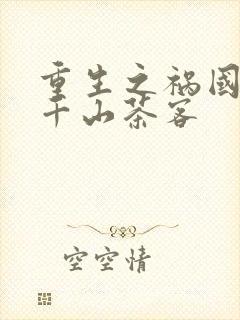 重生之祸國
千山茶客
空空情